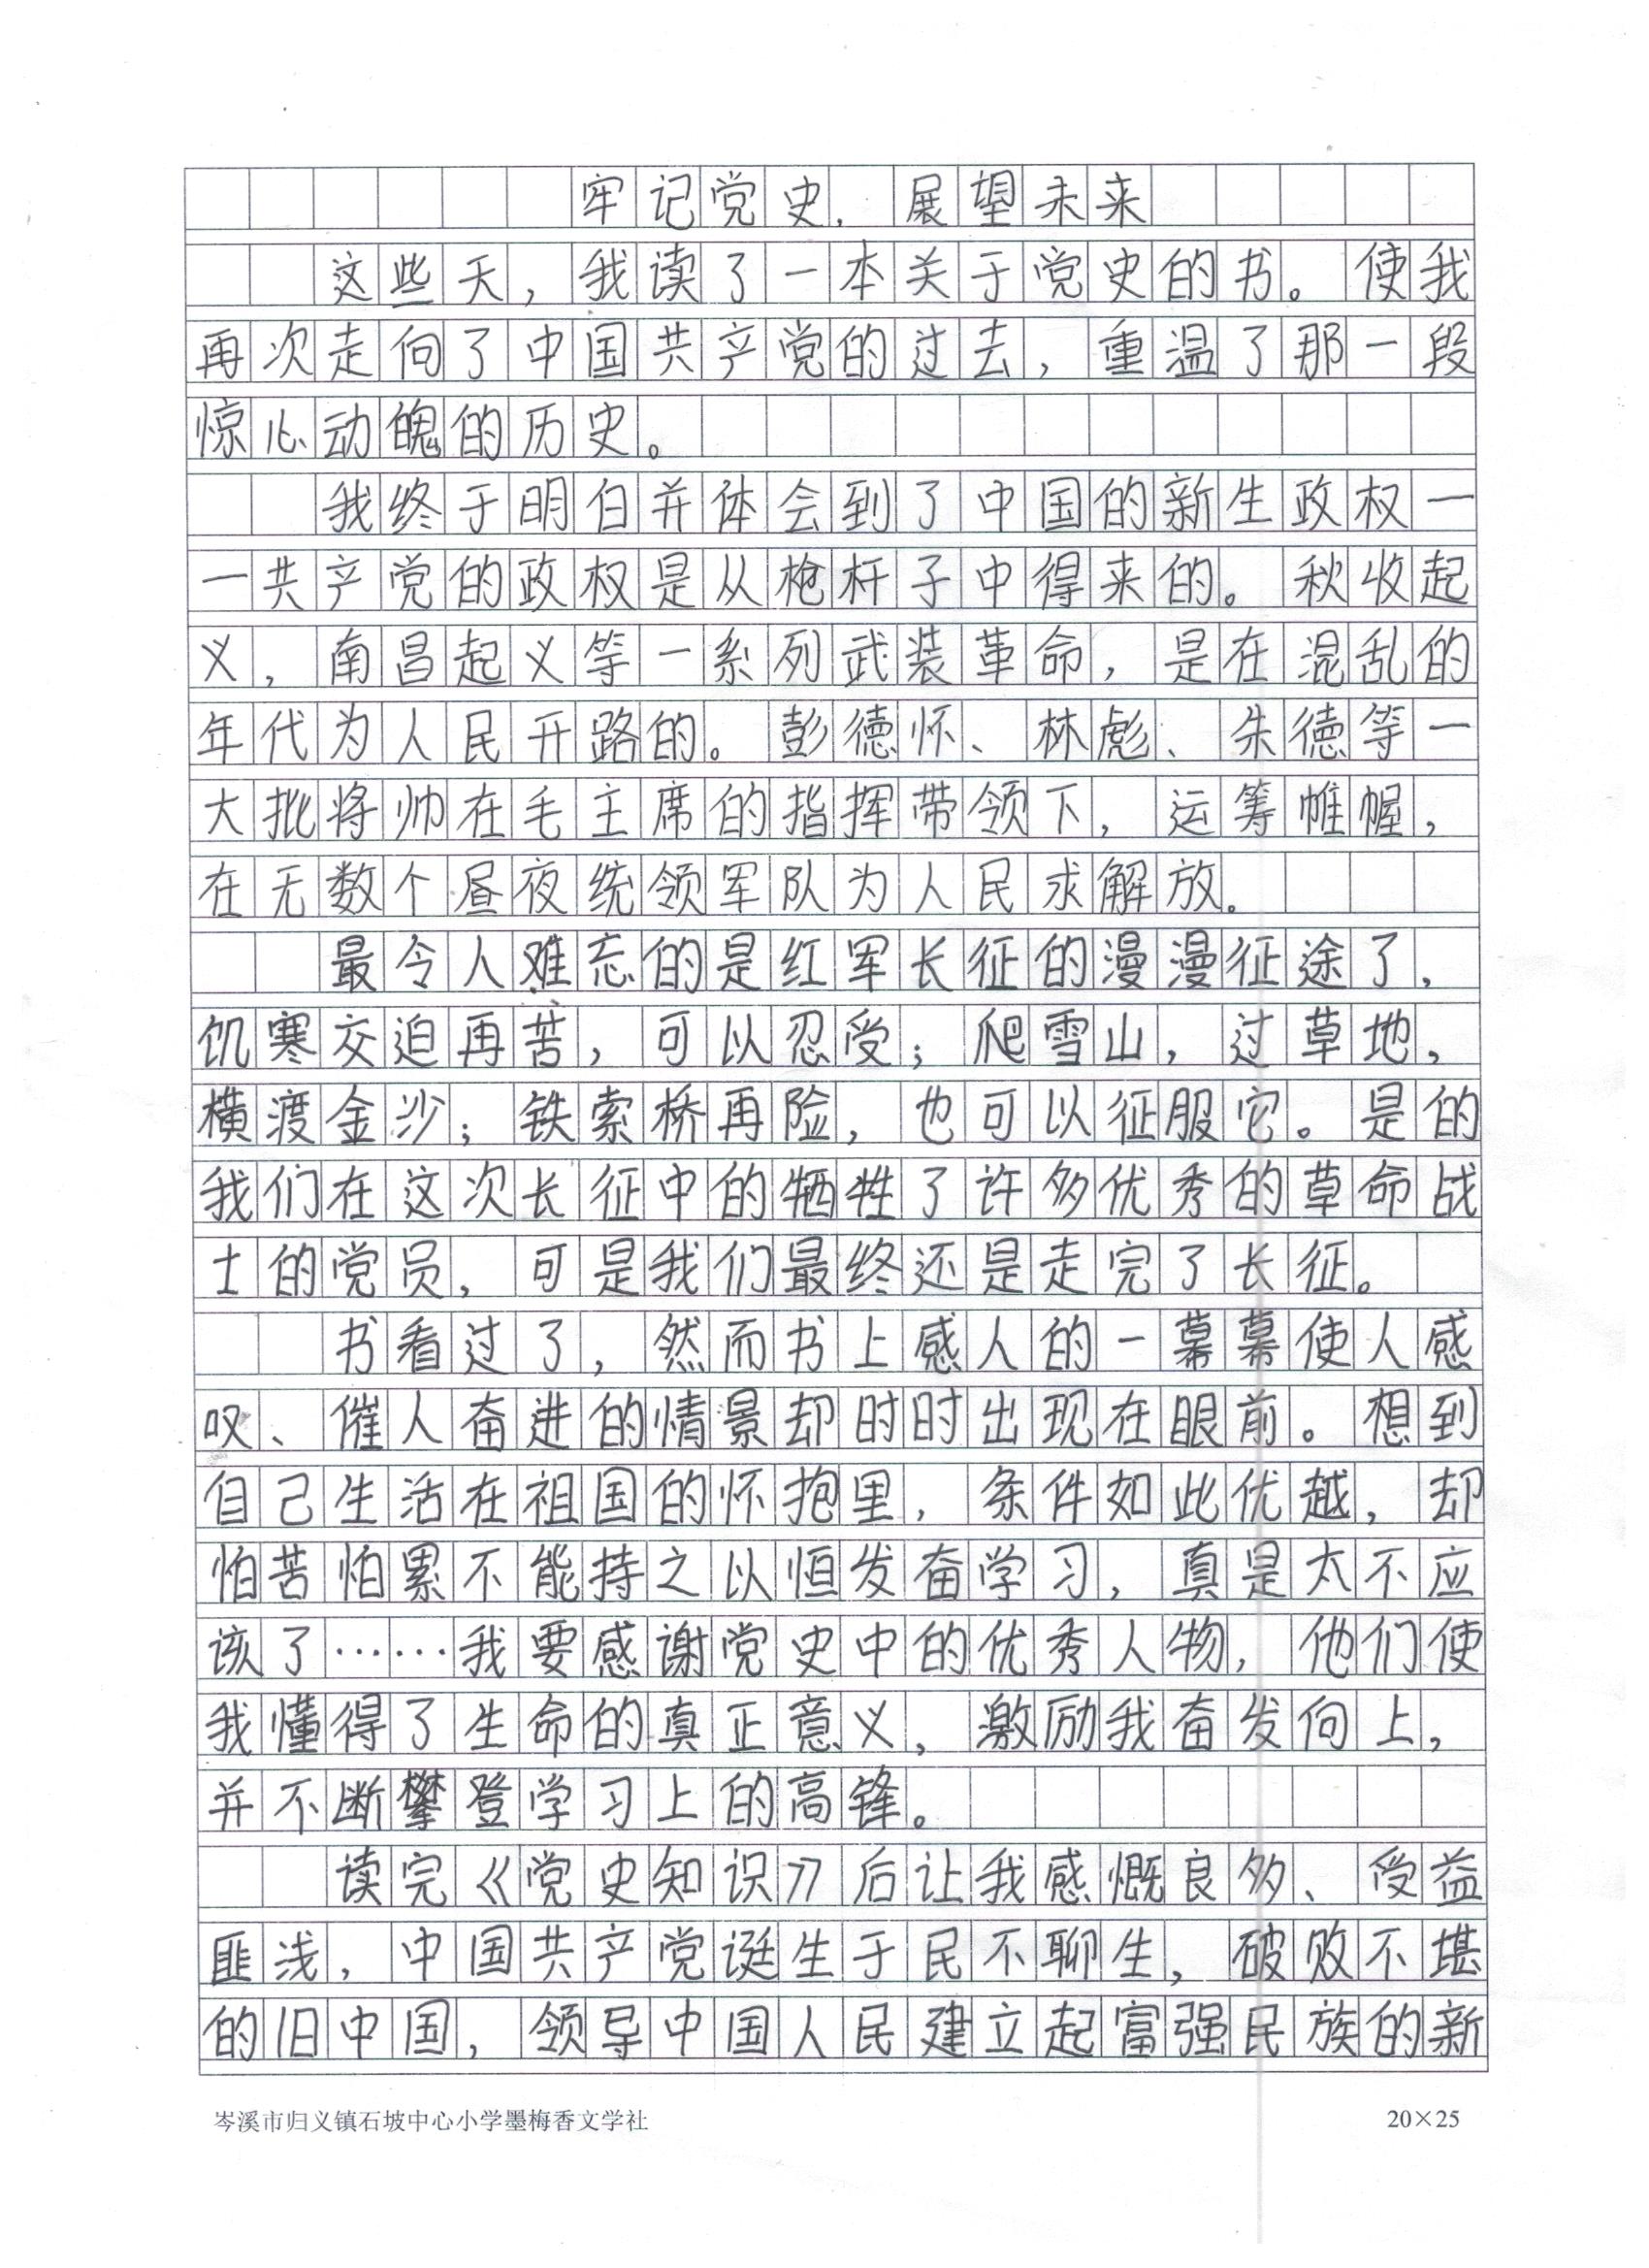 牢记党史，展望未来
这些天，我读了一本关于党史的书。使我
再次走向了中国共产党的过去，重温了那一段
惊心动魄的历史。
我终于明白并体会到了中国的新生政权一
一共产党的政权是从枪杆子中得来的。秋收起
义，南昌起义等一系列武装革命，是在混乱的
年代为人民开路的。彭德怀、林彪、朱德等一
大批将帅在毛主席的指挥带领下，运筹帷幄，
在无数个昼夜统领军队为人民求解放。
最令人难忘的是红军长征的漫漫征途了，
饥寒交迫再苦，可以忍受；爬雪山，过草地，
横渡金沙；铁索桥再险，也可以征服它。是的
我们在这次长征中的牺牲了许多优秀的草命战
士的党员，可是我们最终还是走完了长征。
书看过了，然而书上感人的一幕幕使人感
叹、催人奋进的情景却时时出现在眼前。想到
自己生活在祖国的怀抱里，条件如此优越，却
怕苦怕累不能持之以恒发奋学习，真是太不应
该了……我要感谢党史中的优秀人物，他们使
我懂得了生命的真正意义，激励我奋发向上，
并不断攀登学习上的高锋。
读完《党史知识》后让我感慨良多、受益
匪浅，中国共产党诞生于民不聊生，破败不堪
的旧中国，领导中国人民建立起富强民族的新
岑溪市归义镇石坡中心小学墨梅香文学社
20×25